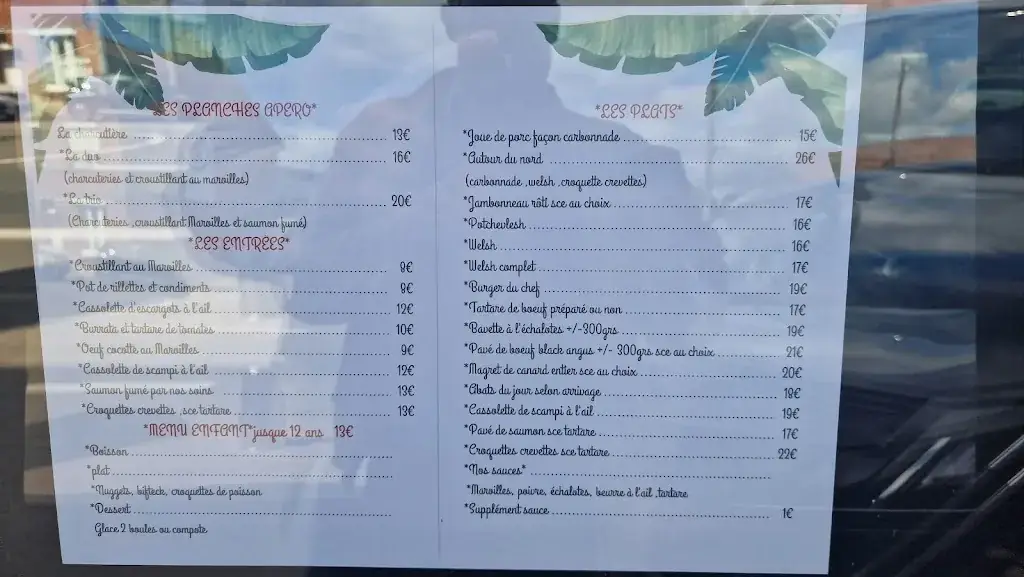 LES PLANCHES APERO*
La charcutière 13€
*La duo 16€
(charcuteries et croustillant au maroilles)
*La trio 20€
(Charcuteries ,croustillant Maroilles et saumon fumé)
*LES ENTRÉES*
*Croustillant au Maroilles 8€
*Pot de rillettes et condiments 8€
*Cassolette d'escargots à l'ail 12€
*Burrata et tartare de tomates 10€
*Oeuf cocotte au Maroilles 9€
*Cassolette de scampi à l'ail 12€
*Saumon fumé par nos soins 13€
*Croquettes crevettes ,sce tartare 13€
*MENU ENFANT*jusque 12 ans 13€
*Boisson
*plat
*Nuggets, bifteck, croquettes de poisson
*Dessert
Glace 2 boules ou compote
*LES PLATS*
*Joue de porc façon carbonnade 15€
*Autour du nord 26€
(carbonnade ,welsh ,croquette crevettes)
*Jambonneau rôti sce au choix 17€
*Potchevlesh 16€
*Welsh 16€
*Welsh complet 17€
*Burger du chef 19€
*Tartare de boeuf préparé ou non 17€
*Bavette à l'échalotes +/-300grs 19€
*Pavé de boeuf black angus +/- 300grs sce au choix 21€
*Magret de canard entier sce au choix 20€
*Abats du jour selon arrivage 18€
*Cassolette de scampi à l'ail 19€
*Pavé de saumon sce tartare 17€
*Croquettes crevettes sce tartare 22€
*Nos sauces*
*Maroilles, poivre, échalotes, beurre à l'ail ,tartare
*Supplément sauce 1€